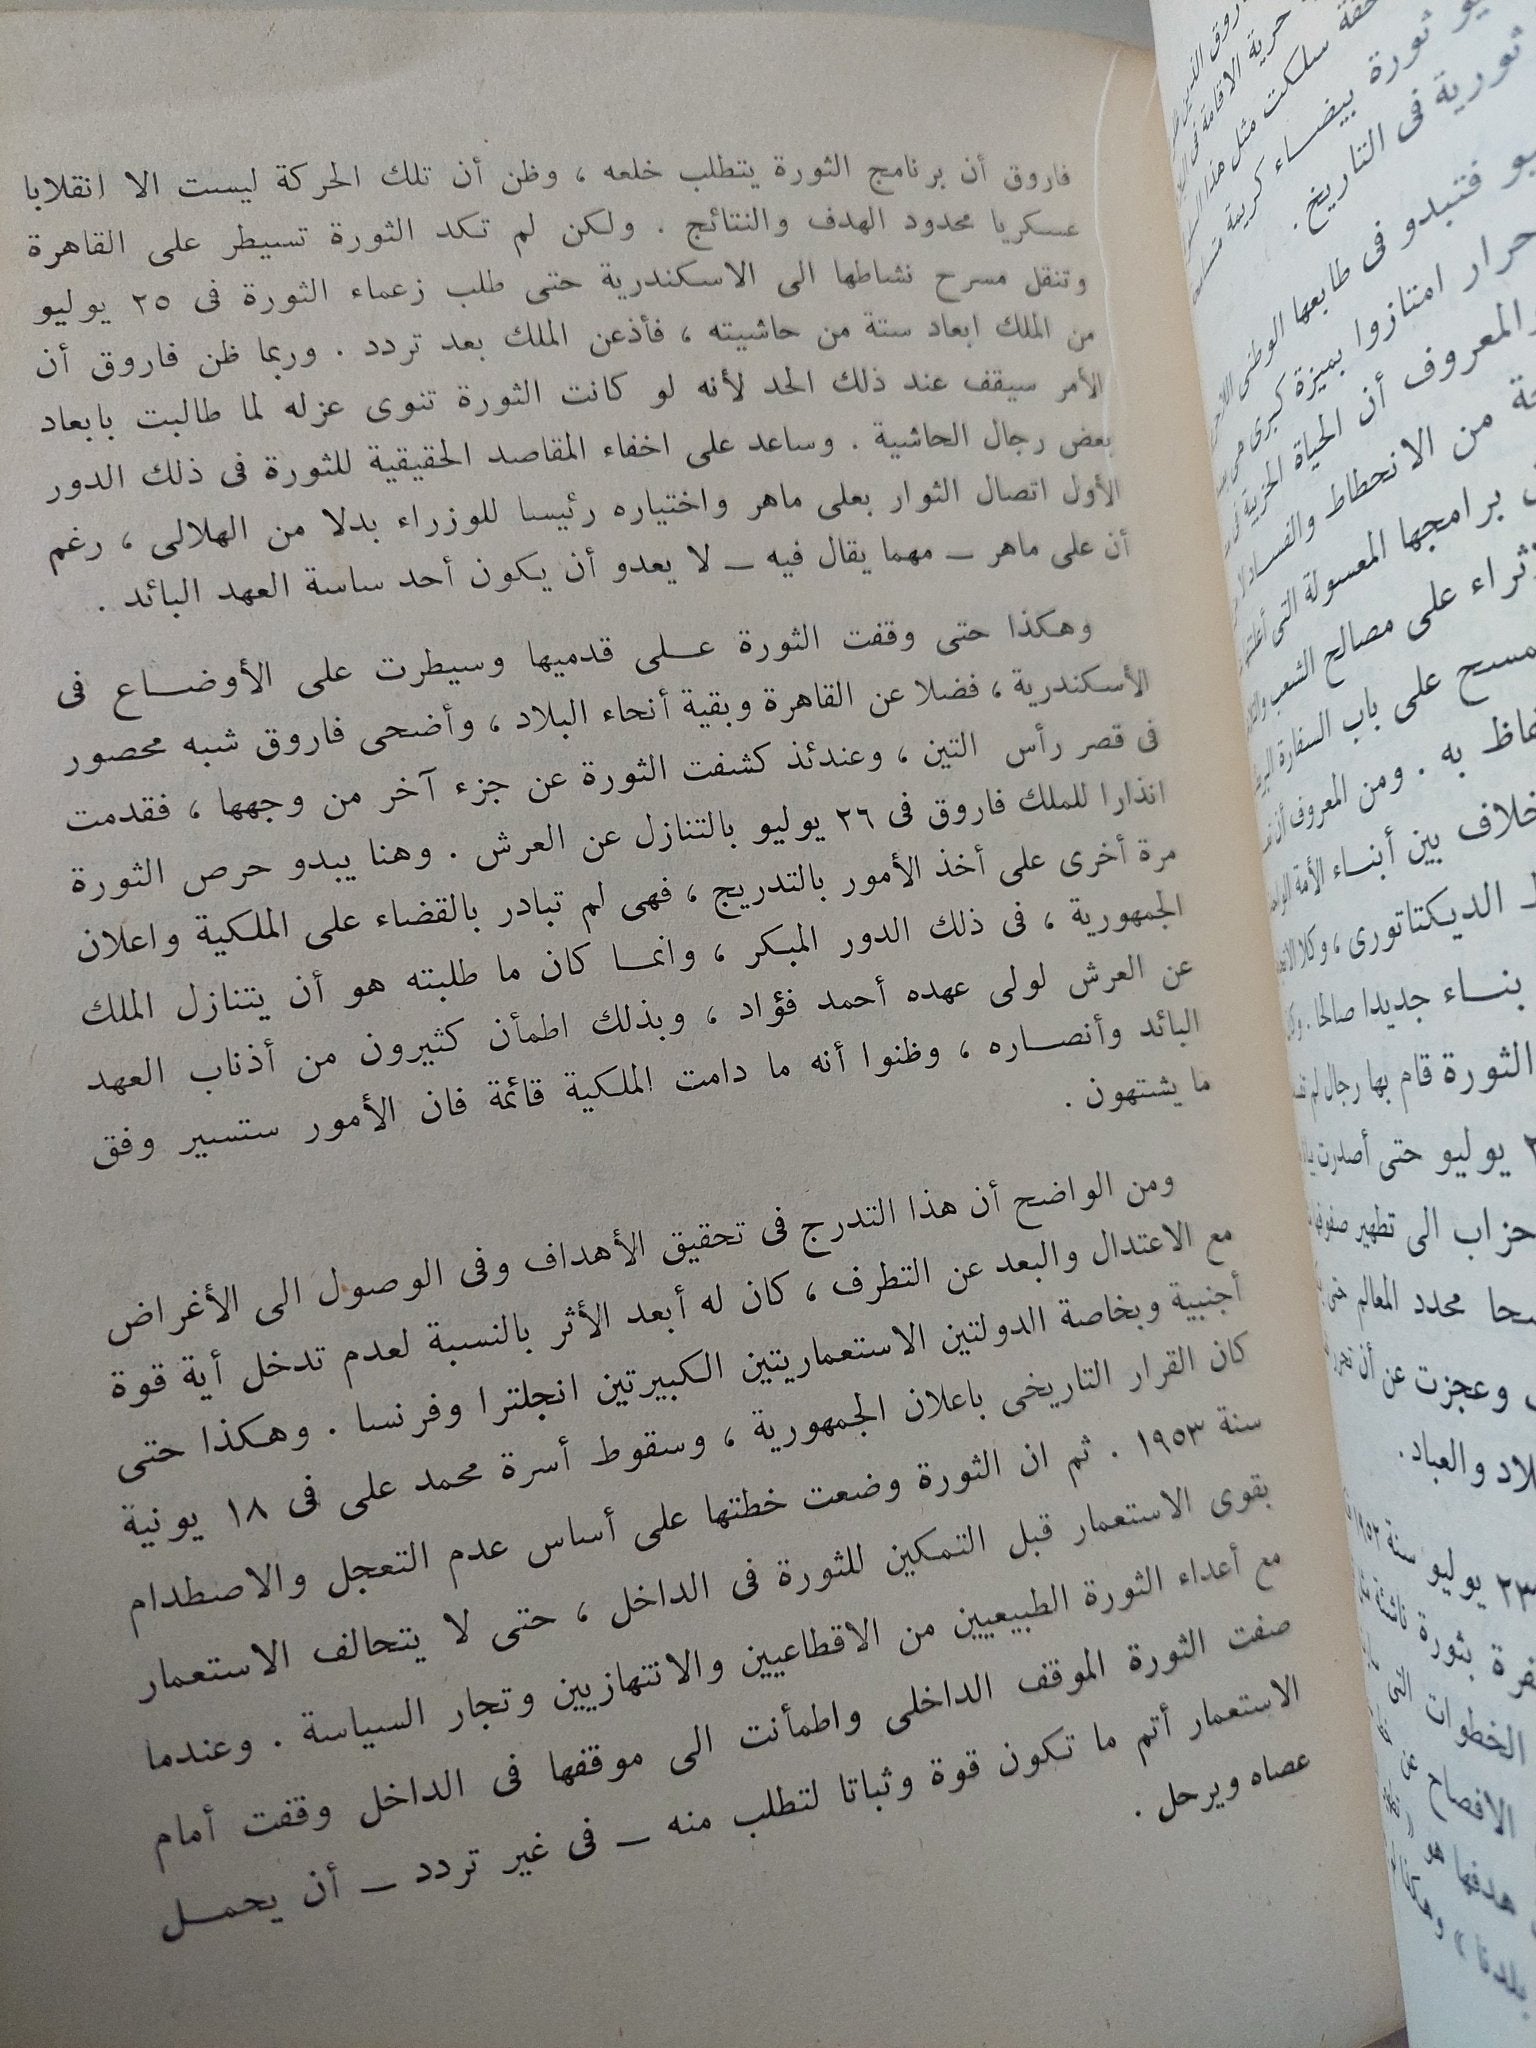 فاروق أن برنامج الثورة يتطلب خلعه ، وظن أن تلك الحركة ليست الا انقلابا
عسكريا محدود الهدف والنتائج . ولكن لم تكد الثورة تسيطر على القاهرة
وتنقل مسرح نشاطها الى الاسكندرية حتى طلب زعماء الثورة فى ٢٥ يوليو
من الملك ابعاد ستة من حاشيته ، فأذعن الملك بعد تردد . وربما ظن فاروق أن
الأمر سيقف عند ذلك الحد لأنه لو كانت الثورة تنوى عزله لما طالبت بابعاد
بعض رجال الحاشية . وساعد على اخفاء المقاصد الحقيقية للثورة فى ذلك الدور
الأول اتصال الثوار بعلى ماهر واختياره رئيسا للوزراء بدلا من الهلالى ، رغم
أن على ماهر — مهما يقال فيه — لا يعدو أن يكون أحد ساسة العهد البائد .
وهكذا حتى وقفت الثورة عـلى قدميها وسيطرت على الأوضـاع فى
الأسكندرية ، فضلا عن القاهرة وبقية أنحاء البلاد ، وأضحى فاروق شبه محصور
فى قصر رأس التين ، وعندئذ كشفت الثورة عن جزء آخر من وجهها ، فقدمت
انذارا للملك فاروق فى ٢٦ يوليو بالتنازل عن العرش . وهنا يبدو حرص الثورة
مرة أخرى على أخذ الأمور بالتدريج ، فهى لم تبادر بالقضاء على الملكية واعلان
الجمهورية ، فى ذلك الدور المبكر ، وانمـا كان ما طلبته هو أن يتنازل الملك
عن العرش لولى عهده أحمد فؤاد ، وبذلك اطمأن كثيرون من أذناب العهد
البائد وأنصـاره ، وظنوا أنه ما دامت الملكية قائمة فان الأمور ستسير وفق
ما يشتهون .
ومن الواضح أن هذا التدرج فى تحقيق الأهداف وفى الوصول الى الأغراض
مع الاعتدال والبعد عن التطرف ، كان له أبعد الأثر بالنسبة لعدم تدخل أية قوة
أجنبية وبخاصة الدولتين الاستعماريتين الكبيرتين انجلترا وفرنسا . وهكذا حتى
كان القرار التاريخى باعلان الجمهورية ، وسقوط أسرة محمد على فى ١٨ يونية
سنة ١٩٥٣ . ثم ان الثورة وضعت خطتها على أساس عدم التعجل والاصطدام
بقوى الاستعمار قبل التمكين للثورة فى الداخل ، حتى لا يتحالف الاستعمار
مع أعداء الثورة الطبيعيين من الاقطاعيين والانتهازيين وتجار السياسة . وعندما
صفت الثورة الموقف الداخلى واطمأنت الى موقفها فى الداخل وقفت أمام
الاستعمار أتم ما تكون قوة وثباتا لتطلب منه — فى غير تردد — أن يحمـل
عصاه ويرحل .
ثورة بيضـاء كريمة
ثورية فى التاريخ .
فتبدو فى طابعها الوطنى
امتازوا بميزة كبرى هى
المعروف أن الحياة الحزبية
من الانحطاط والفساد
برامجها المعسولة التى
على مصالح الشعب
على باب السفارة
به . ومن المعروف أن
بين أبنـاء الأمة
الديكتاتورى ، وكلا
بنـاء جديدا صالحا .
الثورة قام بها رجال لم
يوليو حتى أصدرت
الى تطهير
محدد المعالم حتى
وعجزت عن أن
والعباد .
٢٣ يوليو سنة ١٩٥٢
بثورة ناشئة
الخطوات التى
الافصاح عن
هدفها هو